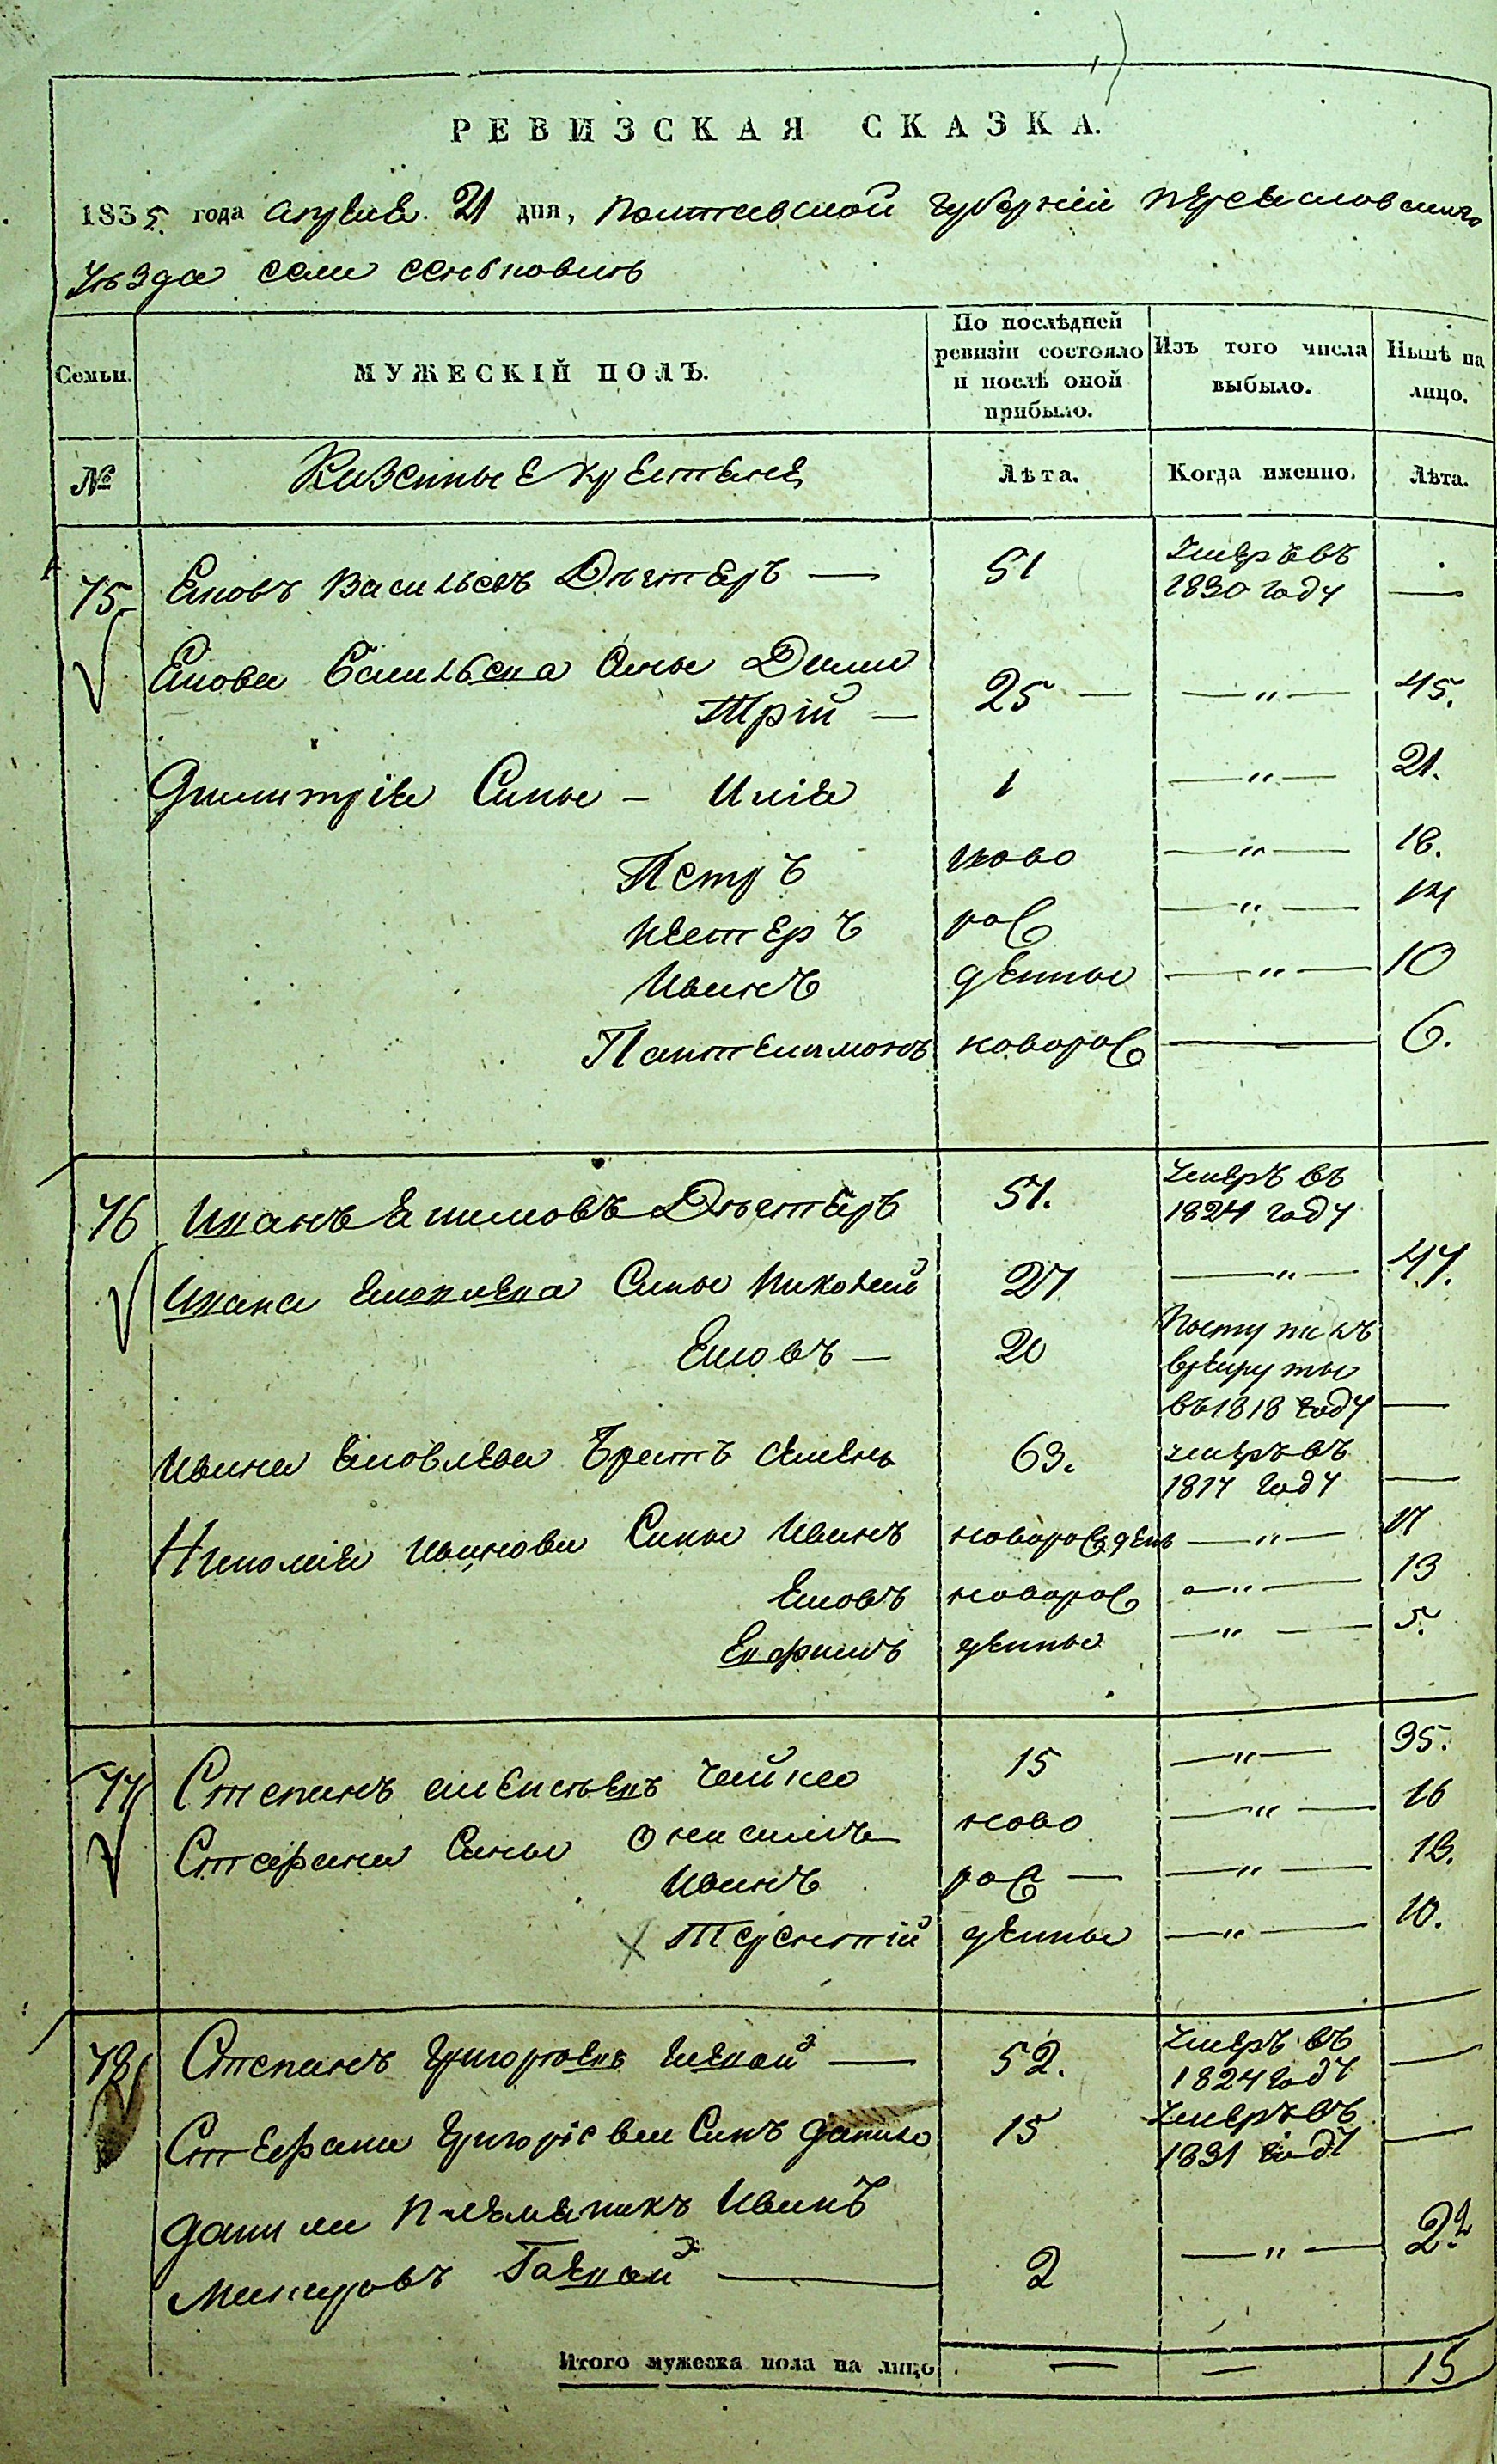 РЕВИЗСКАЯ СКАЗКА.
1835 года апреля 21 дня, Полтавской губернии Переяславскаго
уезда села Сеньковки
Семьи.
МУЖЕСКІЙ ПОЛЪ.
По послѣдней ревизіи состояло и послѣ оной прибыло.
Изъ того числа выбыло.
Нынѣ на лицо.
№
Казенные крестьяне
Лѣта.
Когда именно.
Лѣта.
75. Яковъ Васильевъ — 51 умеръ въ 1830 году —
Якова Васильева сынъ Дми
трій — 25 — — " — 45.
Дмитрія сыны – Илія 1 — " — 21.
Петръ ново — " — 18.
Нестеръ рож — " — 14
Иванъ денные — " — 10
Пантелимонъ новорож — 6.
76 Иванъ Якимовъ 57. умеръ въ 1824 году
Ивана сыны Николай 27 — " — 47.
Яковъ — 20 Поступилъ
в рекруты
въ 1818 году —
Ивана Яковлева братъ Семенъ 63. умеръ въ 1817 году —
Николая Иванова сыны Иванъ новорожденъ — " — 17
Яковъ новорож — " — 13
Ефимъ денные — " — 5.
77 Степанъ Чайка 15 — " — 35.
Стефана сыны Онисимъ ново — " — 16
Иванъ рож — — " — 13.
Терентій денные — " — 10.
78 Степанъ Григорьевъ — 52. умеръ въ 1824 году —
Стефана Григоріева сынъ Данило 15 умеръ въ 1831 году —
Данила племянникъ Иванъ
Гаевой — 2 — " — 22
Итого мужеска пола на лицо — — 15